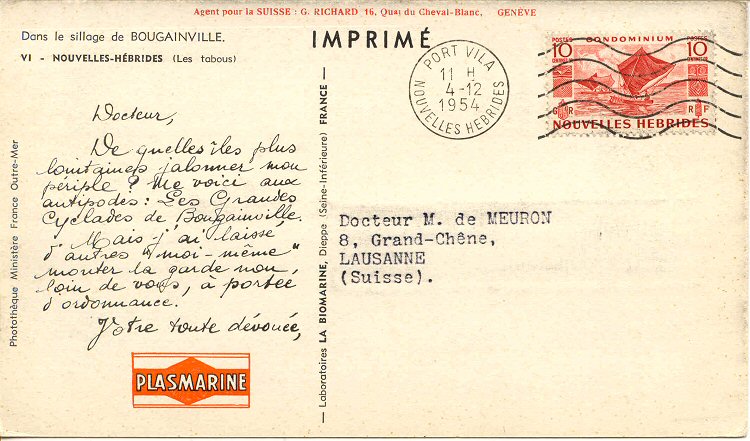 Agent pour la SUISSE : G. RICHARD 16, Quai du Cheval-Blanc, GENÈVE
Dans le sillage de BOUGAINVILLE.
VI - NOUVELLES-HÉBRIDES (Les tabous)
IMPRIMÉ
PORT VILA
11 H
4-12
1954
NOUVELLES HEBRIDES
POSTES CONDOMINIUM POSTES
10 10
CENTIMES OR CENTIMES OR
G R R F
NOUVELLES HEBRIDES
Docteur,
De quelles îles plus
lointaines jalonner mon
périple ? Me voici aux
antipodes : Les Grandes
Cyclades de Bougainville.
Mais j'ai laissé
d'autres "moi-même"
monter la garde non
loin de vous, à portée
d'ordonnance.
Votre toute dévouée,
PLASMARINE
Photothèque Ministère France Outre-Mer
— Laboratoires LA BIOMARINE, Dieppe (Seine-Inférieure) FRANCE —
Docteur M. de MEURON
8, Grand-Chêne,
LAUSANNE
(Suisse).